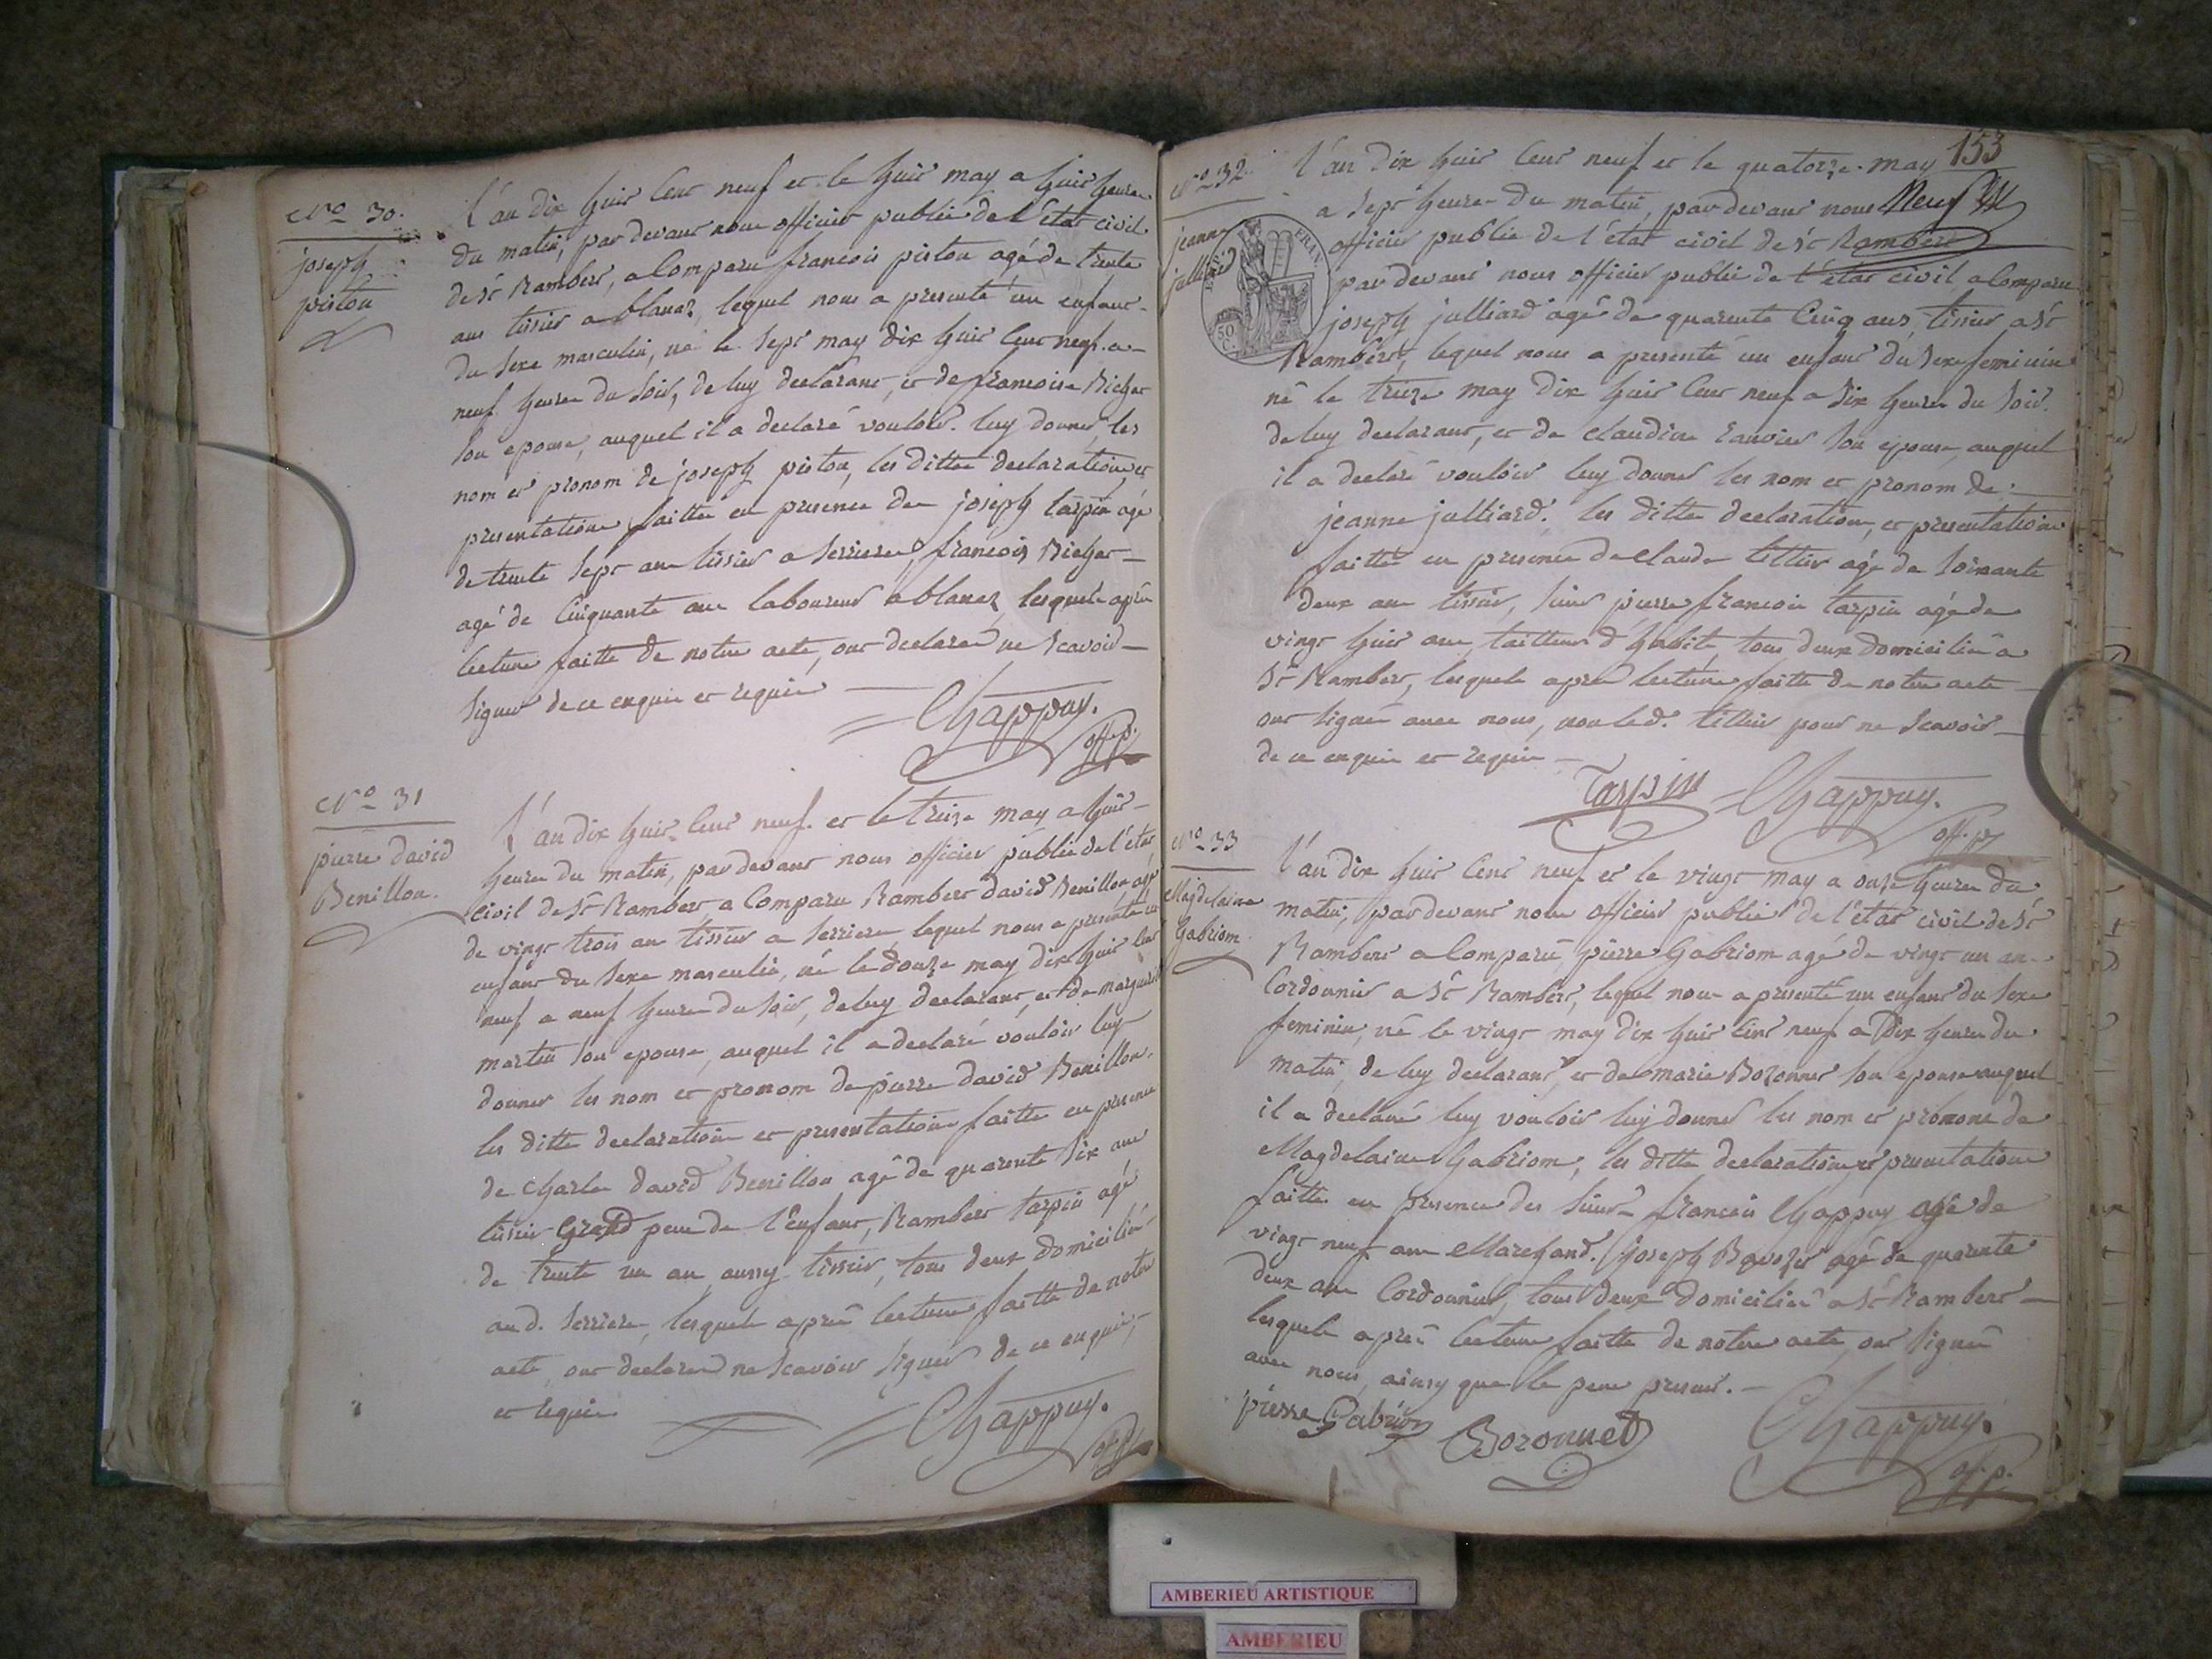 N.o 30.
joseph
piston
L'an dix huit cent neuf et le huit may a huit heures
du matin, par devant nous officier public de l'état civil
de st Rambert, a Comparu francois piston agé de trente
ans tissier a blanaz, lequel nous a presenté un enfant
du sexe masculin, né le sept may dix huit cent neuf a
neuf heures du soir, de luy declarant, et de francoise Richer
son epouse, auquel il a declaré vouloir luy donner les
nom et pronom de joseph piston, les dittes declaration et
presentation faitte en presence de joseph tarpin agé
de trente sept ans tissier a serriere, francois Richer
agé de Cinquante ans laboureur a blanaz, lesquels après
lecture faitte de notre acte, ont declaré ne scavoir
signer de ce enquis et requis
Chappuy.
off. p.
N.o 31
pierre david
Benillon.
L'an dix huit cent neuf et le treize may a huit
heures du matin, par devant nous officier public de l'état
civil de st Rambert, a Comparu Rambert david Benillon agé
de vingt trois ans tissier a serriere lequel nous a presenté un
enfant du sexe masculin, né le douze may dix huit cent
neuf a neuf heures du soir, de luy declarant, et de marguerite
martin son epouse, auquel il a declaré vouloir luy
donner les nom et pronom de pierre david Benillon.
les ditte declaration et presentation faitte en presence
de charles david Benillon agé de quarente six ans
tissier Grand pere de l'enfant, Rambert tarpin agé
de trente un an aussy tissier, tous deux domiciliés
au d. serriere, lesquels après lecture faitte de notre
acte, ont declaré ne scavoir signer de ce enquis
et requis
Chappuy.
off. p.
153
N.o 32
jeanne
julliard
L'an dix huit cent neuf et le quatorze may
a sept heures du matin, par devant nous
officier public de l'état civil de st Rambert
par devant nous officier public de l'état civil a Comparu
joseph julliard agé de quarente Cinq ans, tissier a st
Rambert, lequel nous a presenté un enfant du sexe feminin
né le treize may dix huit cent neuf a six heures du soir.
de luy declarant, et de claudine Janvier son epouse, auquel
il a declaré vouloir luy donner les nom et pronom de
jeanne julliard. les ditte declaration, et presentation
faitte en presence de claude tittier agé de soixante
deux ans tissier, sieur pierre francois tarpin agé de
vingt huit ans, tailleur d'habits, tous deux domiciliés a
st Rambert, lesquels après lecture faitte de notre acte
ont signé avec nous, non led. tittier pour ne scavoir
de ce enquis et requis
Tarpin Chappuy.
off. p.
N.o 33
Magdelaine
Gabriom
L'an dix huit cent neuf et le vingt may a onze heures du
matin, par devant nous officier public de l'état civil de st
Rambert a Comparu pierre Gabriom agé de vingt un an
Cordonnier a st Rambert, lequel nous a presenté un enfant du sexe
feminin, né le vingt may dix huit cent neuf a dix heures du
matin, de luy declarant, et de marie Bozonnet son epouse auquel
il a declaré luy vouloir luy donner les nom et pronom de
Magdelaine Gabriom, les ditte declaration et presentation
faitte en presence des sieurs francois Chappuy agé de
vingt neuf ans Marchand. joseph agé de quarente
deux ans Cordonnier, tous deux domiciliés a st Rambert
lesquels après lecture faitte de notre acte, ont signé
avec nous, ainsy que le pere present.
pierre Gabriom Bozonnet Chappuy.
off. p.
AMBERIEU ARTISTIQUE
AMBERIEU